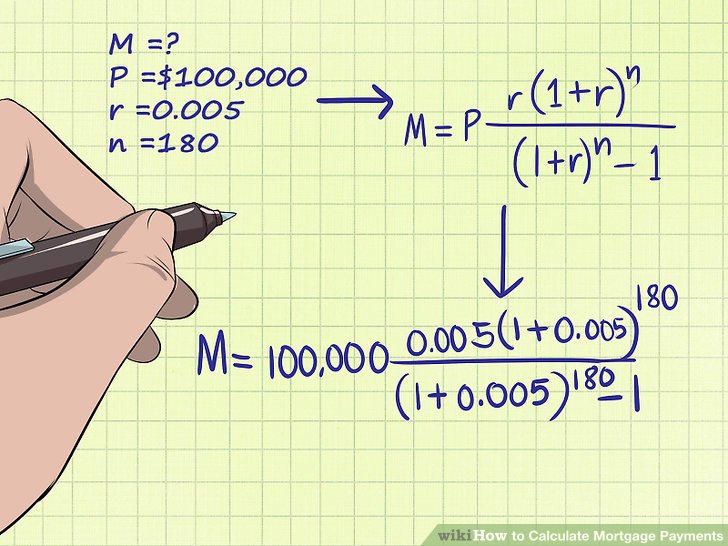 M =?
P =$100,000
r =0.005
n =180
M = P r(1+r)^n
(1+r)^n - 1
M = 100,000 0.005(1+0.005)^180
(1+0.005)^180 - 1
wikiHow to Calculate Mortgage Payments